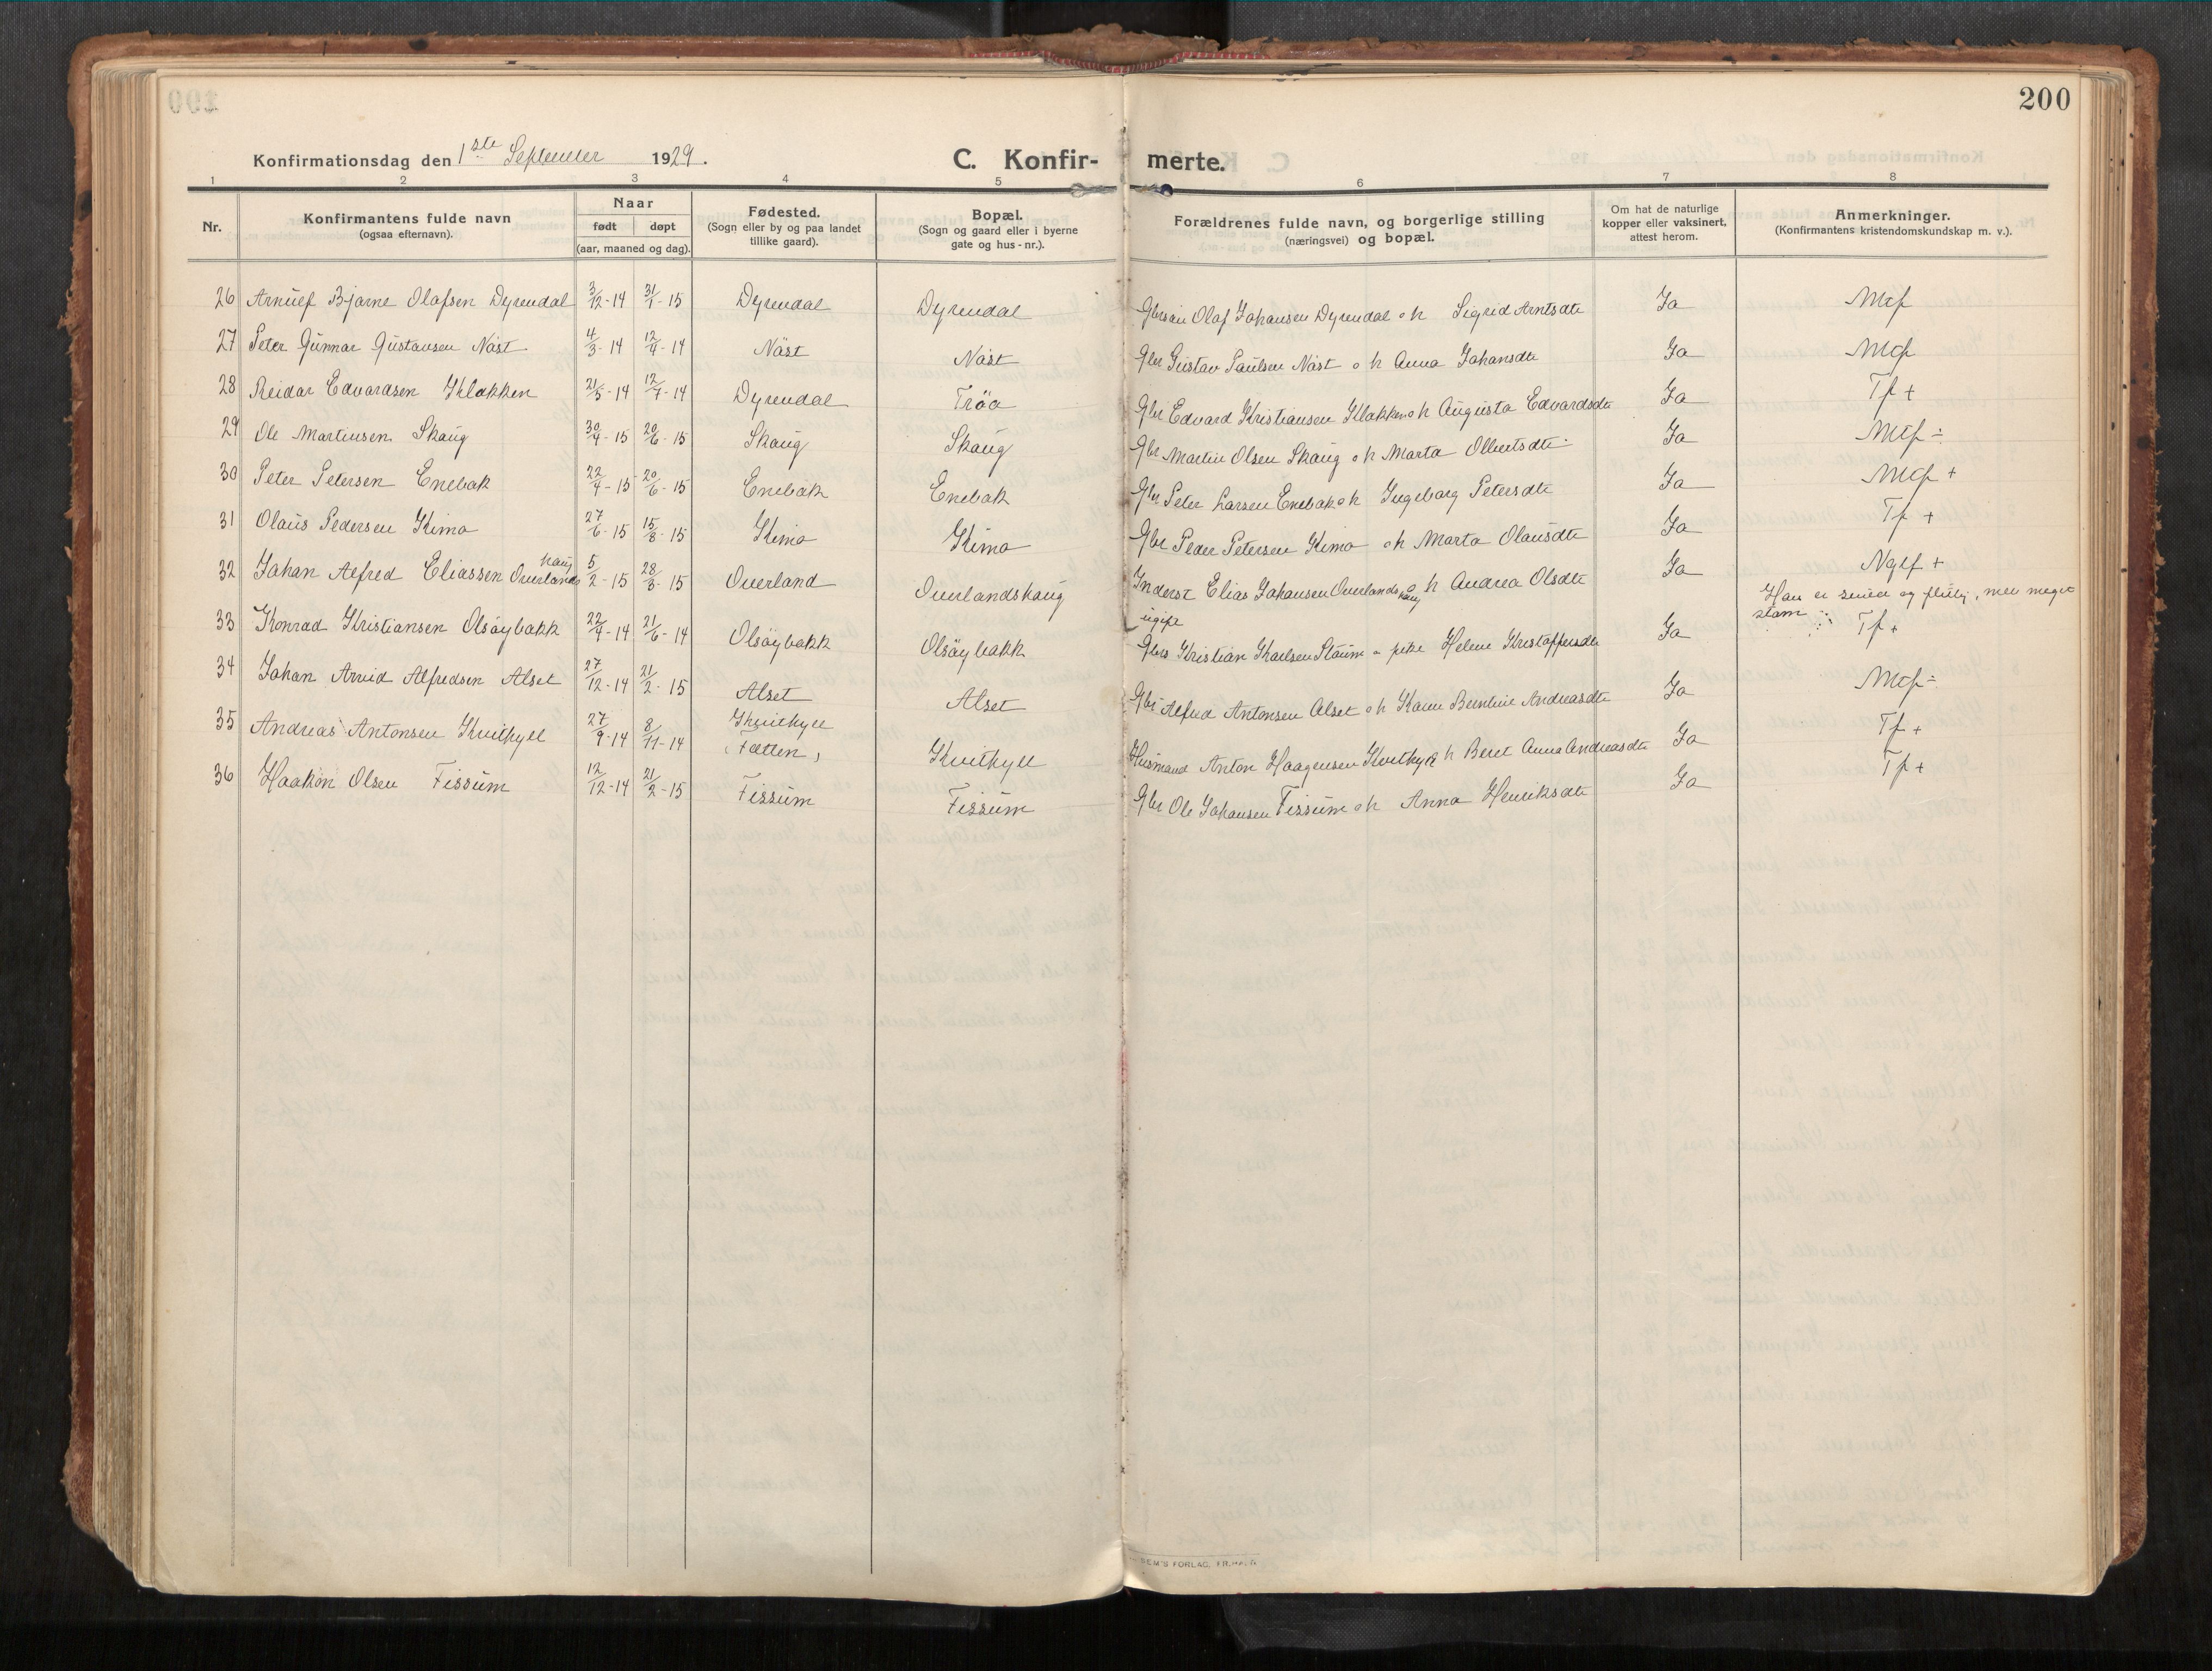 200
Konfirmationsdag den 1ste September 1929.
C. Konfir- merte.
1 2 3 4 5 6 7 8
Nr.
Konfirmantens fulde navn
(ogsaa efternavn).
Naar
født døpt
(aar, maaned og dag).
Fødested.
(Sogn eller by og paa landet
tillike gaard).
Bopæl.
(Sogn og gaard eller i byerne
gate og hus-nr.).
Forældrenes fulde navn, og borgerlige stilling
(næringsvei) og bopæl.
Om hat de naturlige
kopper eller vaksinert,
attest herom.
Anmerkninger.
(Konfirmantens kristendomskundskap m. v.).
26 Arnulf Bjarne Olafsen Dyrendal 3/12-14 31/1-15 Dyrendal Dyrendal Olaf Johansen Dyrendal o h Sigrid Arntsdtr Ja Mtf
27 Peter Gunnar Gustavsen Näst 4/3-14 12/4-14 Näst Näst Gbr Gustav Paulsen Näst o h Anna Johansdtr Ja Mtf
28 Reidar Edvardsen Klakken 21/5-14 12/7-14 Dyrendal Trøa Gbr Edvard Kristiansen Klakken o h Augusta Edvardsdtr Ja Tf +
29 Ole Martinsen Skaug 30/4-15 20/6-15 Skaug Skaug Gbr Martin Olsen Skaug o h Marta Olbertsdtr Ja Mtf ÷
30 Peter Petersen Enebak 22/4-15 20/6-15 Enebak Enebak Gbr Peter Larsen Enebak o h Ingeborg Petersdtr Ja Mtf +
31 Olaus Pedersen Kimo 27/6-15 15/8-15 Kimo Kimo Gbr Peder Petersen Kimo o h Marta Olausdtr Ja Tf +
32 Johan Alfred Eliassen Overlandshaug 5/2-15 28/3-15 Overland Overlandshaug Inderst Elias Johansen Overlandshaug o h Andrea Olsdtr Ja Ngtf +
Han er snild og flitig, men meget
stam
ugift
33 Konrad Kristiansen Olsøybakk 22/4-14 21/6-14 Olsøybakk Olsøybakk Kristian Karlsen Staum o pike Helene Kristoffersdtr Ja Tf +
34 Johan Arvid Alfredsen Alset 27/12-14 21/2-15 Alset Alset Gbr Alfred Antonsen Alset o h Karen Berntine Andreasdtr Ja Mtf ÷
35 Andreas Antonsen Kvithyll 27/9-14 8/11-14 Kvithyll
(Fætten) Kvithyll Husmand Anton Haagensen Kvithyll o h Beret Anna Andreasdtr Ja Tf +
36 Haakon Olsen Fissum 12/12-14 21/2-15 Fissum Fissum Gbr Ole Johansen Fissum o h Anna Henriksdtr Ja Tf +
SEM'S FORLAG, FR.HALD